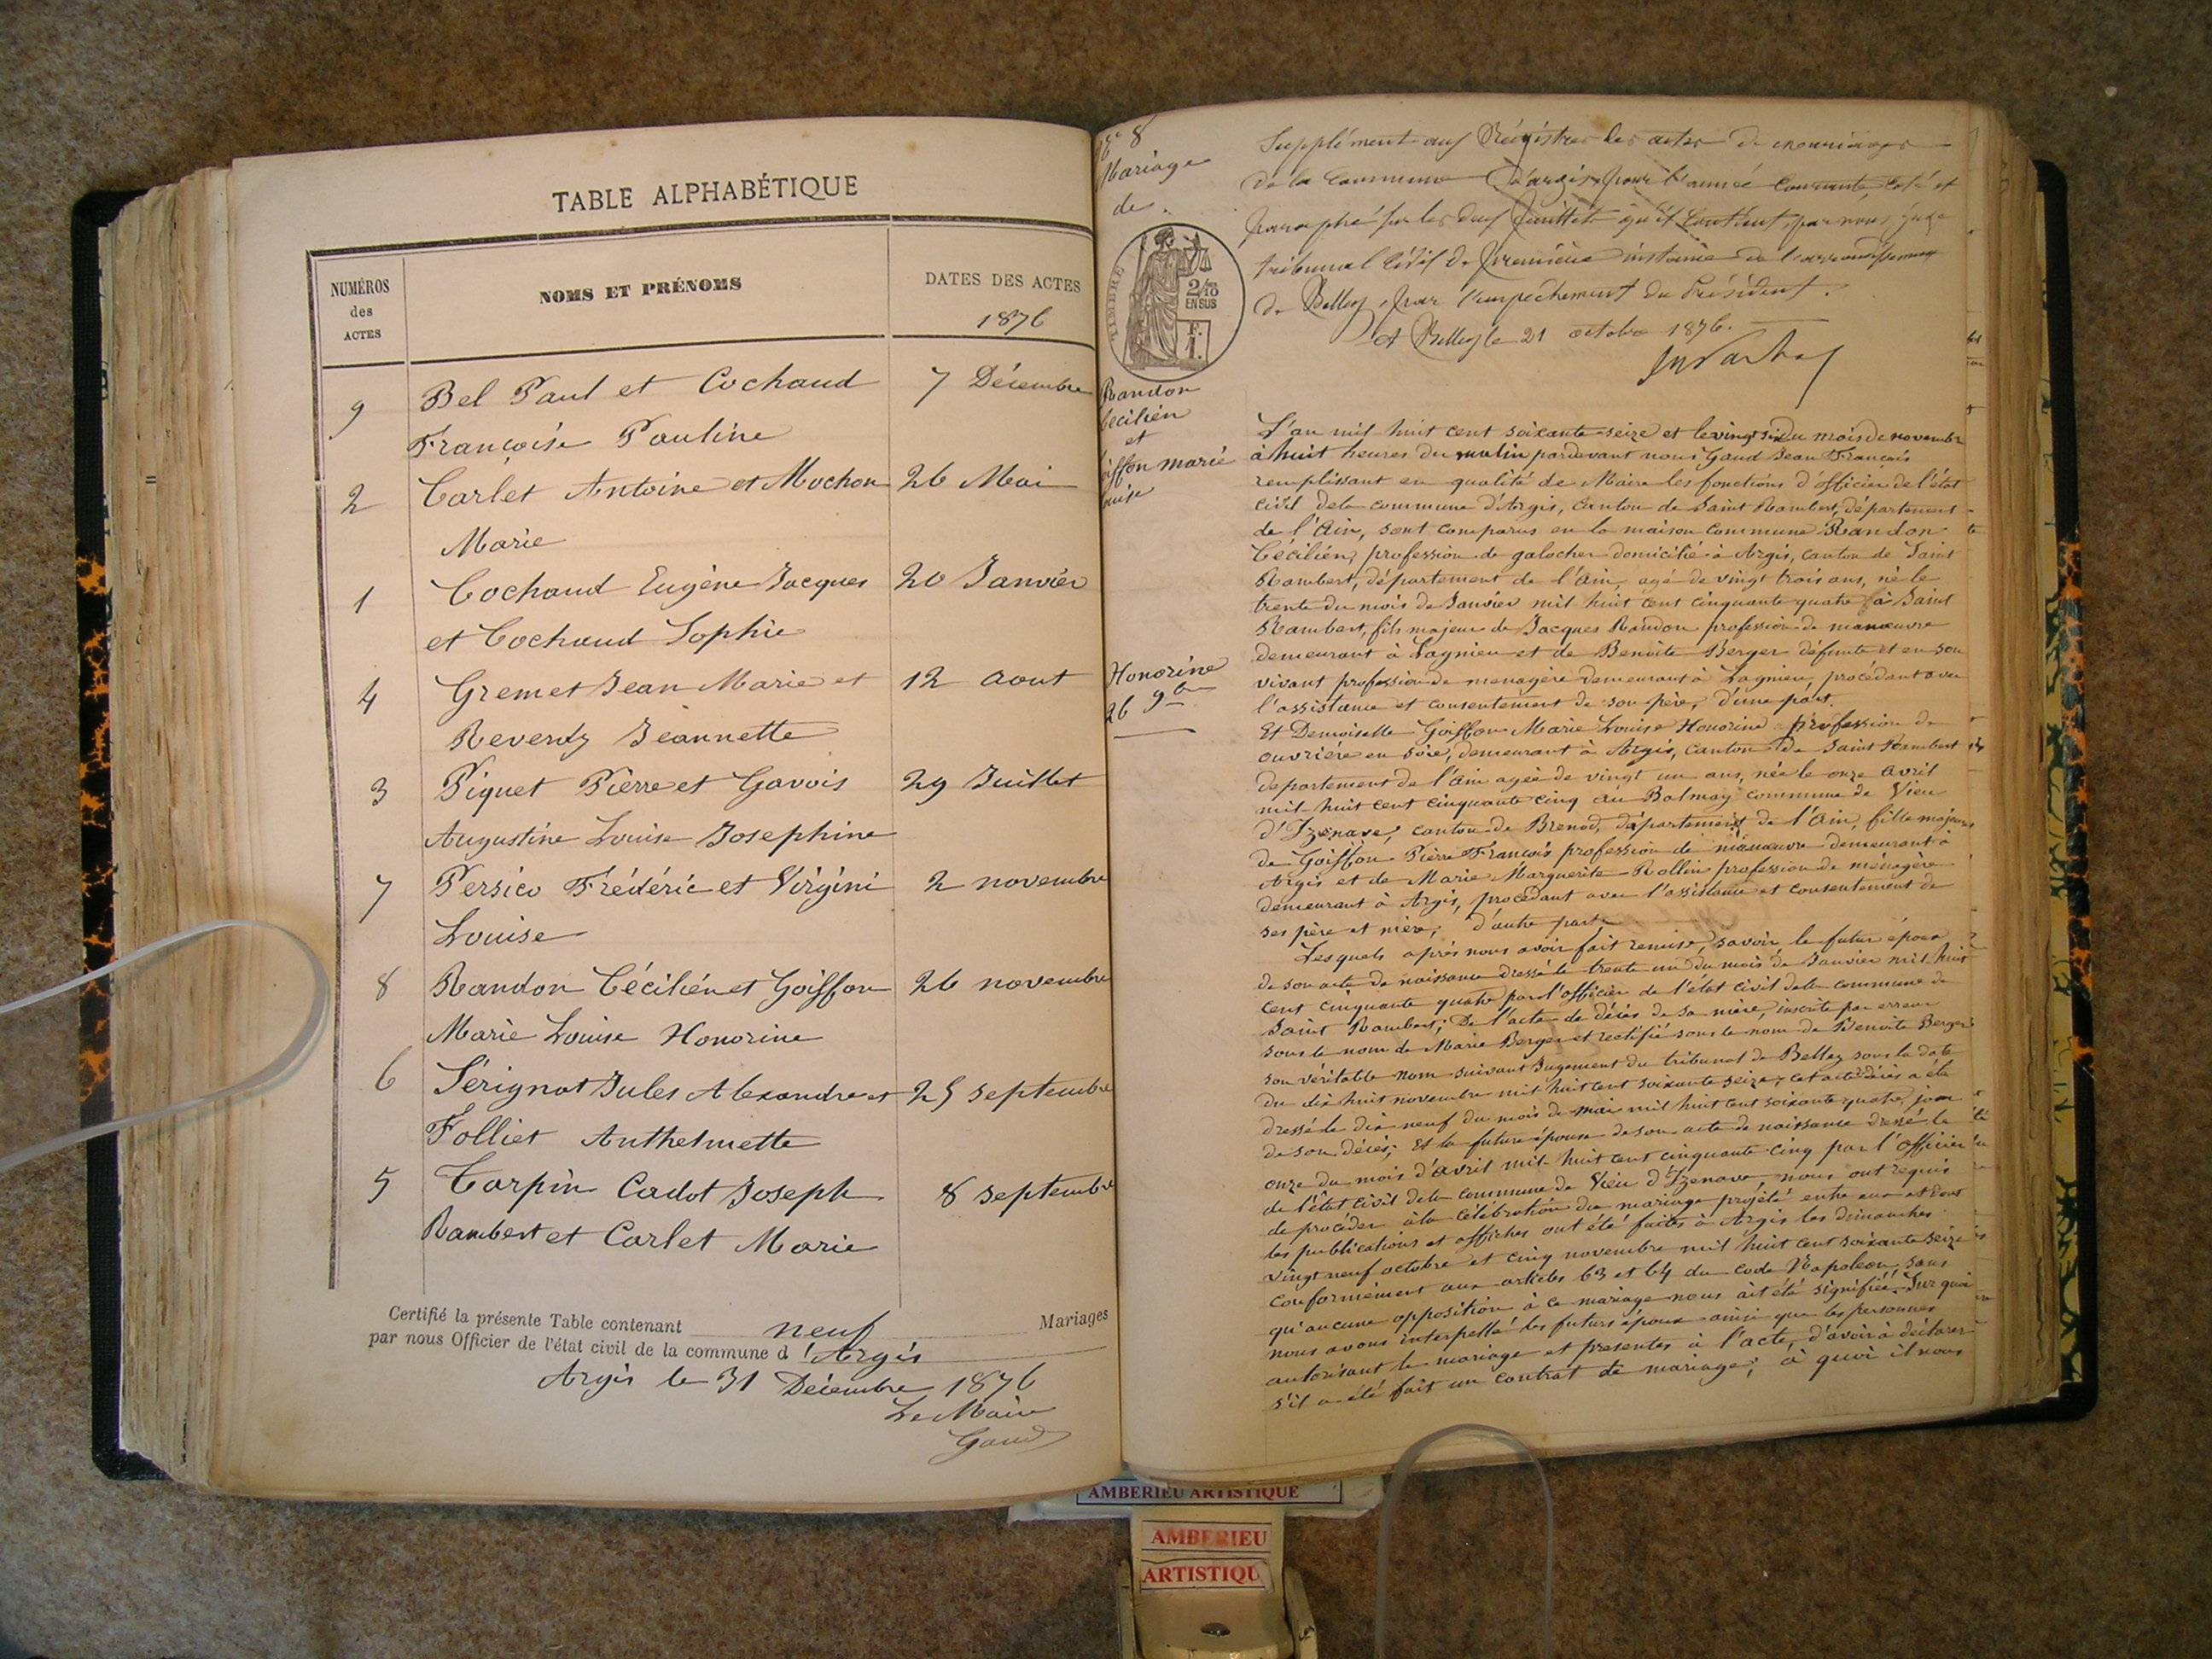 TABLE ALPHABÉTIQUE
NUMÉROS
des
ACTES
NOMS ET PRÉNOMS
DATES DES ACTES
1876
9 Bel Paul et Cochaud 7 Décembre
Françoise Pauline
2 Carlet Antoine et Mochon 26 Mai
Marie
1 Cochaud Eugène Jacques 20 Janvier
et Cochaud Sophie
4 Gremet Jean Marie et 12 aout
Reverdy Jeannette
3 Piquet Pierre et Gavois 29 Juillet
Augustine Louise Josephine
7 Persico Frédéric et Virgini 2 novembre
Louise
8 Randon Cécilien et Goiffon 26 novembre
Marie Louise Honorine
6 Sérignat Jules Alexandre et 25 septembre
Folliet Anthelmette
5 Tarpin Cadot Joseph 8 septembre
Rambert et Carlet Marie
Certifié la présente Table contenant neuf Mariages
par nous Officier de l'état civil de la commune d'Argis
Argis le 31 Décembre 1876
Le Maire
Gaud
8
Mariage
de
TIMBRE
2/10
EN SUS
F.
1.
Randon
Cécilien
et
Goiffon marie
Louise
Honorine
26 9bre
Supplément aux Régistres des actes de mariages
de la Commune d'argis, pour l'année Courante, Coté et
paraphé sur les deux feuillets qu'il Contient, par nous juge
tribunal Civil de première instance de l'arrondissement
de Belley, pour l'empêchement du Président.
A Belley le 21 octobre 1876.
L'an mil huit cent soixante seize et le vingt six du mois de novembre
à huit heures du matin pardevant nous Gaud Jean François
remplissant en qualité de Maire les fonctions d'officier de l'état
civil de la commune d'Argis, canton de Saint Rambert, département
de l'Ain, sont comparus en la maison commune Randon
Cécilien, profession de galocher domicilié à Argis, canton de Saint
Rambert, département de l'Ain, agé de vingt trois ans, né le
trente du mois de Janvier mil huit cent cinquante quatre à Saint
Rambert, fils majeur de Jacques Randon profession de manœuvre
demeurant à Lagnieu et de Benoite Berger défunte et en son
vivant profession de menagère demeurant à Lagnieu, procédant avec
l'assistance et consentement de son père, d'une part.
Et Demoiselle Goiffon Marie Louise Honorine profession de
ouvrière en soie, demeurant à Argis, canton de Saint Rambert
département de l'Ain agée de vingt un ans, née le onze Avril
mil huit cent cinquante cinq au Balmay commune de Vieu
d'Izenave, canton de Brenod, département de l'Ain, fille majeure
de Goiffon Pierre François profession de manœuvre demeurant à
Argis et de Marie Marguerite Rollin profession de ménagère
demeurant à Argis, procédant avec l'assistance et consentement de
ses père et mère, d'autre part,
Lesquels après nous avoir fait remise, savoir, le futur époux
de son acte de naissance dressé le trente un du mois de Janvier mil huit
cent cinquante quatre par l'officier de l'état civil de la commune de
Saint Rambert; De l'acte de décès de sa mère, inscrite par erreur
sous le nom de Marie Berger et rectifié sous le nom de Benoite Berger
son véritable nom suivant Jugement du tribunal de Belley sous la date
du dix huit novembre mil huit cent soixante seize, cet acte décès a été
dressé le dix neuf du mois de mai mil huit cent soixante quatre, jour
de son décès; Et la future épouse de son acte de naissance dressé le
onze du mois d'avril mil huit cent cinquante cinq par l'officier
de l'état civil de la commune de Vieu d'Izenave, nous ont requis
de procéder à la célébration du mariage projeté entre eux et dont
les publications et affiches ont été faites à Argis les dimanches
vingt neuf octobre et cinq novembre mil huit cent soixante seize
conformément aux articles 63 et 64 du Code Napoléon, sans
qu'aucune opposition à ce mariage nous ait été signifiée. Sur quoi
nous avons interpellé les futurs époux ainsi que les personnes
autorisant le mariage et presentes à l'acte, d'avoir à déclarer
s'il a été fait un contrat de mariage; à quoi il nous
AMBERIEU ARTISTIQUE
AMBERIEU
ARTISTIQU